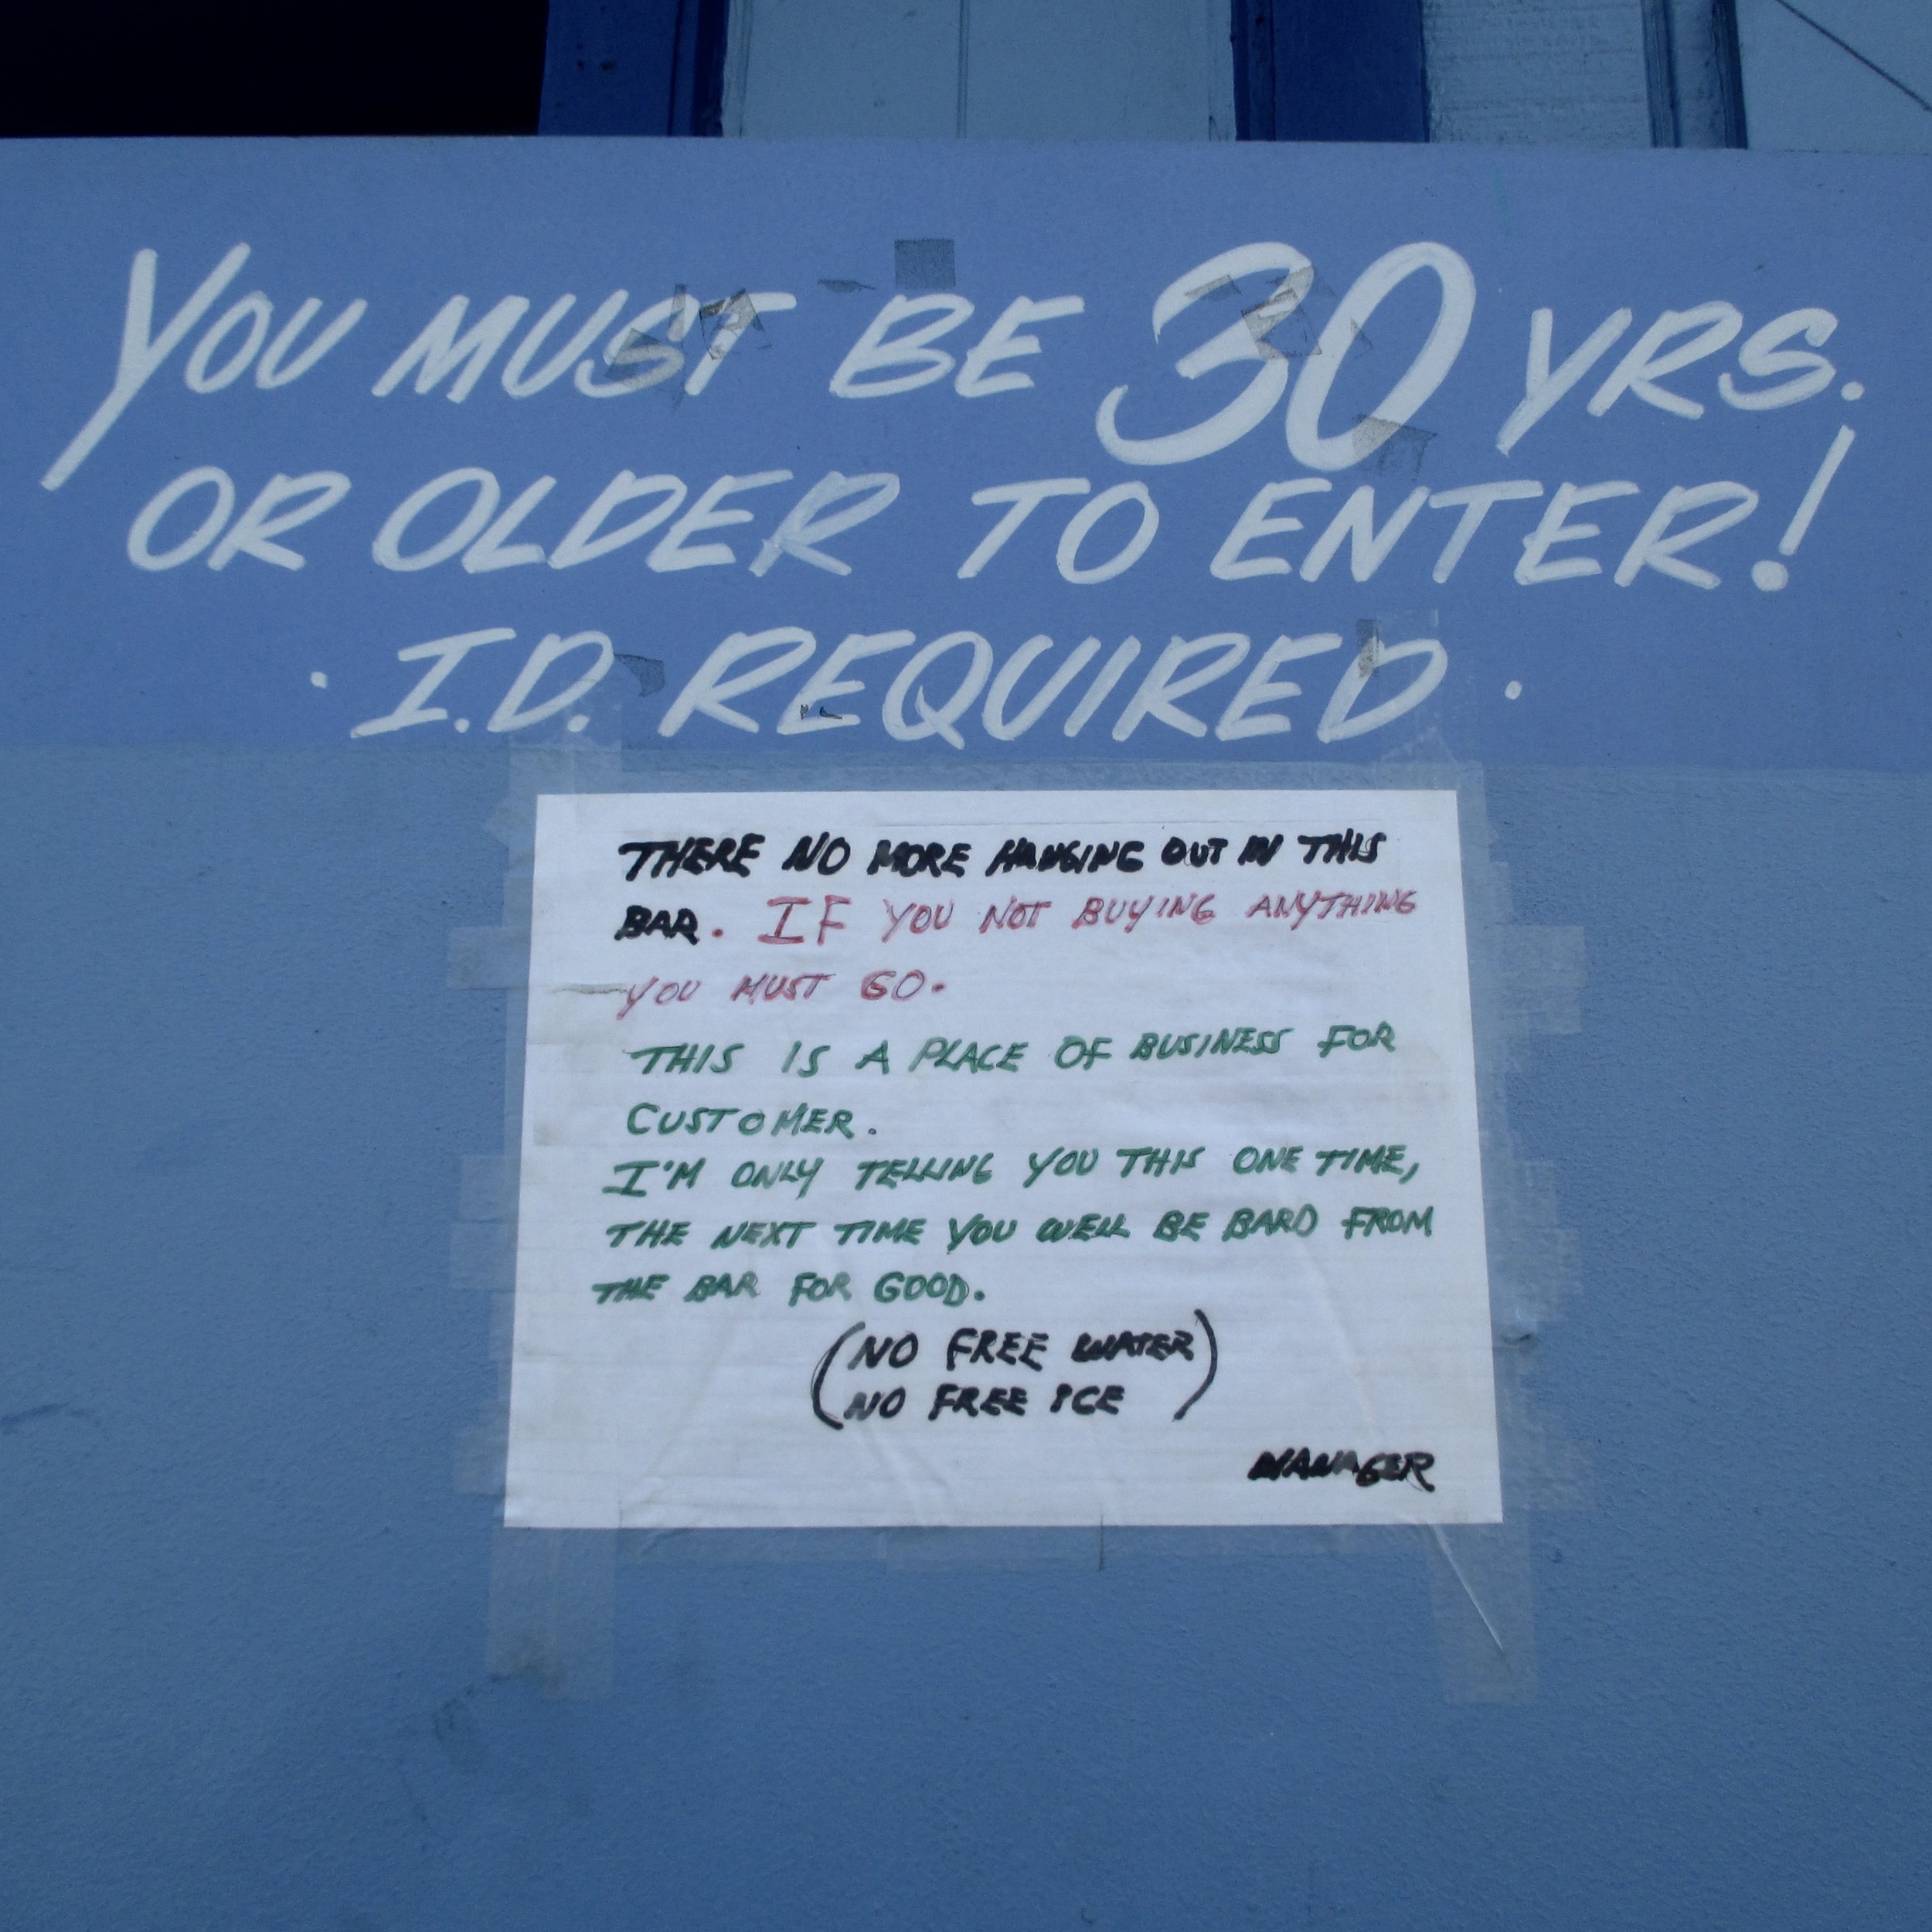 YOU MUST BE 30 YRS.
OR OLDER TO ENTER!
· I.D. REQUIRED ·
THERE NO MORE HANGING OUT IN THIS
BAR. IF YOU NOT BUYING ANYTHING
YOU MUST GO.
THIS IS A PLACE OF BUSINESS FOR
CUSTOMER.
I'M ONLY TELLING YOU THIS ONE TIME,
THE NEXT TIME YOU WELL BE BARD FROM
THE BAR FOR GOOD.
(NO FREE WATER)
(NO FREE ICE)
MANAGER